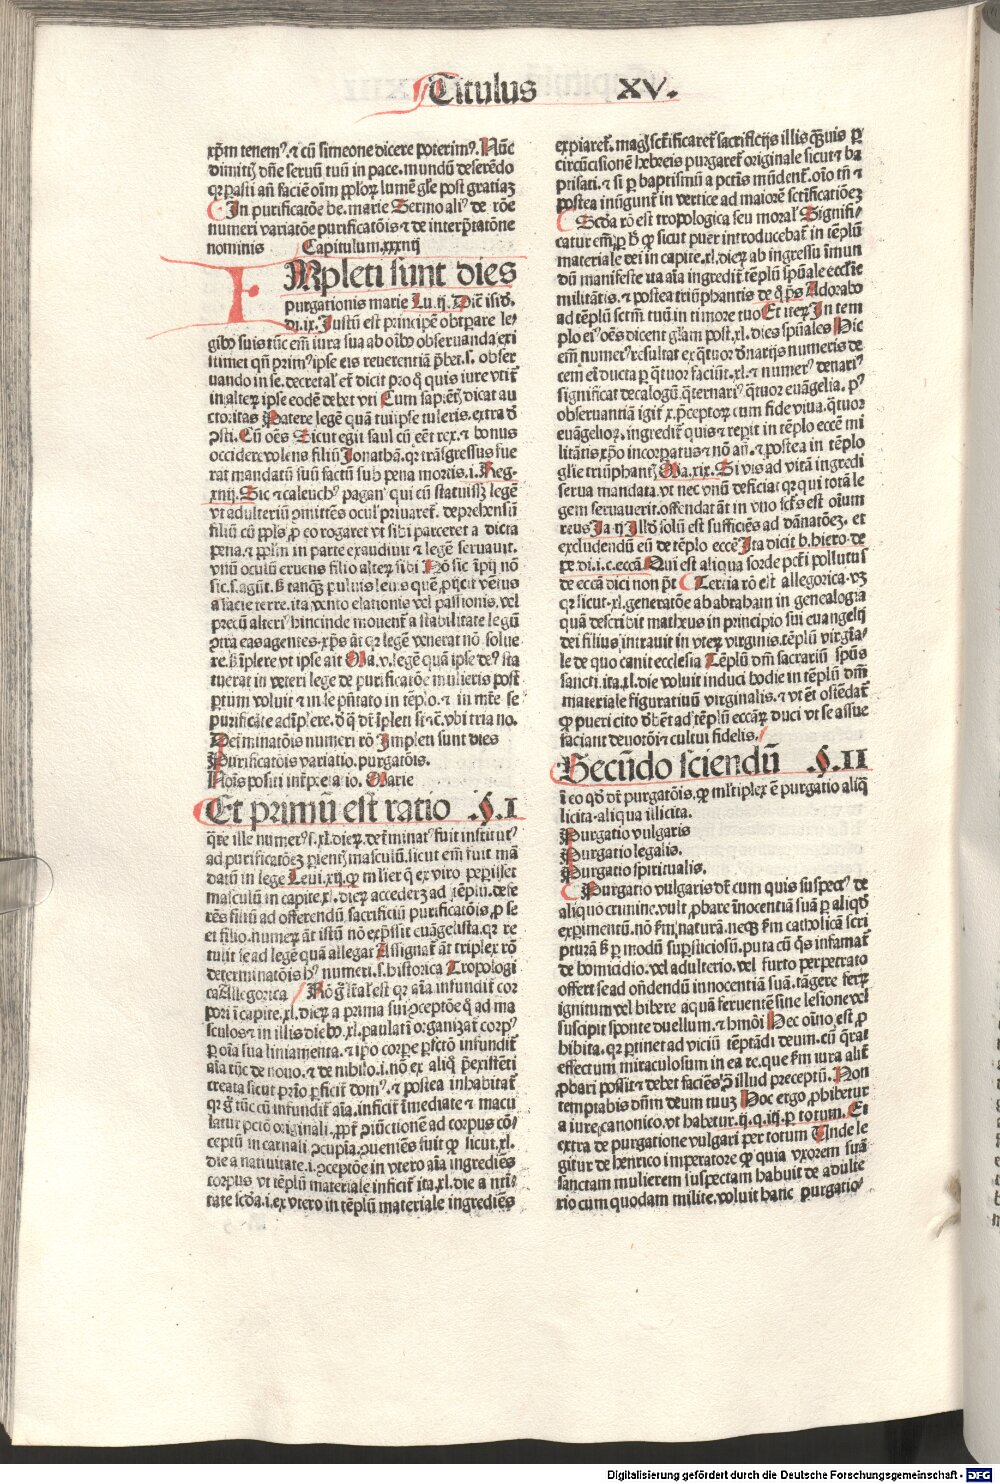 Titulus XV.
xp̄m tenemꝰ. ⁊ cū simeone dicere poterimꝰ. Nūc
dimittꝭ dn̄e seruū tuū in pace. mundū deserēdo
qꝛ parasti an̄ faciē oīm pplorꝝ lumē glē post gratiaꝫ
In purificatōe be. marie Sermo aliꝰ de rōe
numeri variatōe purificatōis ⁊ de interp̄tatōne
nominis Capitulum. xxxiiij
IMpleti sunt dies
purgationis marie Lu. ij. Dic̄ isid̕.
di. ix. Justū est principē obtꝑare le⸗
gibꝰ suis tūc em̄ iura sua ab oībꝰ obseruanda exi
stimet qn̄ primꝰ ipse eis reuerentiā p̄bet. s. obser
uando in se. decretal̕ et̄ dicit pro qͥ quis iure vtit̄
in alteꝝ ipse eodē debet vti Cum sapiētꝭ dicat au
ctoritas Patere legē quā tu ipse tuleris. extra d̕
ꝯsti. Cū oēs Sicut egit saul cū eēt rex. ⁊ bonus
occidere volens filiū Jonathā. qꝛ trāsgressus fue
rat mandatū suū factū sub pena mortis. i. Reg.
xiiij. Sic ⁊ caleuchꝰ paganꝰ qui cū statuissꝫ legē
vt adulteriū ꝯmittēs oculꝭ priuaret̄. deprehensū
filiū cū ppl̕s ꝓ eo rogaret vt sibi parceret a dicta
pena. ⁊ ppl̕m in parte exaudiuit ⁊ legē seruauit.
vnū oculū eruens filio alteꝝ sibi Nō sic īpij nō
sic. s. agūt. s̕ tanqꝫ puluis leuis quē ꝓijcit ventus
a facie terre. ita vento elationis vel passionis. vel
precū alteriꝰ hincinde mouent̄ a stabilitate legū
ꝯtra eas agentes. xp̄s āt qꝛ legē venerat nō solue
re. s̕ īplere vt ipse ait Ma. v. legē quā ipse deꝰ sta
tuerat in veteri lege de purificatōe mulieris post
ꝑtum voluit ⁊ in se p̄ntato in tēp̕lo. ⁊ in mr̄e se
purificate adīplere. d̕ qͥ dr̄ īpleti st̄ ⁊c̄. vbi tria no.
Det̄minatōis numeri rō Impleti sunt dies
Purificatōis variatio. purgatōis.
Noīs positi int̄p̄e.a.io. Marie
Et primū est ratio §. I
q̄re ille numerꝰ. s. xl. dieꝝ. det̄minatꝰ fuit institutꝰ
ad purificatōeꝫ ꝑientꝭ masculū. sicut em̄ fuit mā
datū in lege Leui. xij. qꝙ ml̕ier q̄ ex viro peꝑisset
masculū in capite. xl. dieꝝ accederꝫ ad tēplū. defe
rēs filiū ad offerendū sacrificiū purificatōis ꝓ se
et filio. numeꝝ āt istū nō exp̄ssit euāgelista. qꝛ re
tulit se ad legē quā allegat Assignat̄ āt triplex rō
determinatōis hꝰ numeri. s. historica Tropologi
ca Allegorica Rō ḡ l̕ral̕ est qꝛ aīa infundit̄ cor
pori ī capite. xl. dieꝝ a prima sui ꝯceptōe q̄ ad ma
sculos ⁊ in illis diebꝰ. xl. paulatī organizat̄ corpꝰ
ꝑ oīa sua liniamenta. ⁊ ip̄o corꝑe ꝑfctō infundit̄
aīa tūc de nouo. ⁊ de nihilo. i. nō ex aliqͦ p̄existēti
creata sicut prio ꝑficit̄ domꝰ. ⁊ postea inhabitat̄
qꝛ ḡ tūc cū infundit̄ aīa. inficit̄ īmediate ⁊ macu
latur pctō originali. ꝓpt̄ ꝯiūctionē ad corpus cō⸗
ceptū in carnali ꝯcupīa. ꝯueniēs fuit qꝙ sicut. xl.
die a natiuitate. i. ꝯceptōe in vtero aīa ingrediēs
corpus vt tēplū materiale inficit̄ ita. xl. die a nti⸗
tate scd̕a. i. ex vtero in tēplū materiale ingrediēs
expiaret̄. mag̕ sctīficaret̄ sacrificijs illis qꝫuis ꝑ
circūcisionē hebreis purgaret̄ originale sicut ⁊ ba
ptisati. ⁊ si ꝑ baptismū a pctīs mūdent̄. oīo tn̄ ⁊
postea inūgunt̄ in vertice ad maiorē sctīficatiōeꝫ
Scd̕a rō est tropologica seu moral̕ Signifi⸗
catur em̄ ꝑ h̕ qꝙ sicut puer introducebat̄ in tēplū
materiale dei in capite. xl. dieꝝ ab ingressu īmun
dū manifeste ita aīa ingredit̄ tēplū spūale eccl̕ie
militātis. ⁊ postea triūphantis de qͦ p̄s Adorabo
ad tēplū sctm̄ tuū in timore tuo Et iteꝝ In tem
plo eiꝰ oēs dicent gl̕am post. xl. dies spūales Hic
em̄ numerꝰ resultat ex qͣtuor d̕narijs numeris de
cem ei̕ ducta ꝑ qͣtuor faciūt. xl. ⁊ numerꝰ denariꝰ
significat decalogū. qͣternariꝰ qͣtuor euāgelia. pꝰ
obseruantiā igit̄ x. p̄ceptoꝝ cum fide viua. qͣtuor
euāgelioꝝ. ingredit̄ quis ⁊ repit̄ in tēplo eccē mi
litātis xp̄o incorꝑatus ⁊ nō an̄. ⁊ postea in tēplo
glīe triūphantꝭ Ma. xix. Si vis ad vitā ingredi
serua mandata. vt nec vnū deficiat qꝛ qui totā le
gem seruauerit. offendat āt in vno fct̕s est oīum
reus Ja. ij Ill̕d solū est sufficiēs ad dānatōeꝫ. et
excludendū eū de tēplo eccē Ita dicit b. hiero. de
pe. di. i. c. eccā. Qui est aliqua sorde pct̄i pollutus
de eccā dici non pt̄ Tertia rō est allegorica. vꝫ
qꝛ sicut. xl. generatōe ab abraham in genealogia
quā describit matheus in principio sui euangelij
dei filius intrauit in vteꝝ virginis. tēplū virgīa⸗
le de quo canit ecclesia Tēplū dn̄i sacrariū spūs
sancti. ita. xl. die voluit induci hodie in tēplū dn̄i
materiale figuratiuū virginalis. ⁊ vt et̄ oīndat̄
qꝙ pueri cito d̕bent ad tēplū eccāꝝ duci vt se assue
faciant deuotōi ⁊ cultui fidelis.
Secūdo sciendū §. II
ī eo qd̕ dr̄ purgatōis. qꝙ ml̕tiplex ē purgatio aliq̄
licita. aliqua illicita.
Purgatio vulgaris
Purgatio legalis.
Purgatio spiritualis.
Purgatio vulgaris dr̄ cum quis suspectꝰ de
aliquo crimine. vult ꝓbare īnocentiā suā ꝑ aliqd̕
experimentū. nō km̄ naturā. necqꝫ km̄ catholicā scri
pturā s̕ ꝑ modū supsticiosū. puta cū qͥs infamat̄
de homicidio. vel adulterio. vel furto perpetrato
offert se ad oñdendū innocentiā suā. tāgere ferꝝ
ignitum vel bibere aquā feruentē sine lesione vel
suscipit sponte duellum. ⁊ hm̄oi Hec oīno est ꝓ
hibita. qꝛ ꝑtinet ad viciū tēptādi deum. cū q̄rat̄
effectum miraculosum in ea re. que km̄ iura alit̄
ꝓbari possit ⁊ debet faciēs ꝯ illud preceptū. Non
temptabis dn̄m deum tuuꝫ Hoc ergo ꝓhibetur
a iure canonico. vt habetur. ij. q. iiij. ꝑ totum. Et
extra de purgatione vulgari per totum Unde le
gitur de henrico imperatore qꝙ quia vxorem suā
sanctam mulierem suspectam habuit de adulte
rio cum quodam milite. voluit hanc purgatio⸗
Digitalisierung gefördert durch die Deutsche Forschungsgemeinschaft - DFG